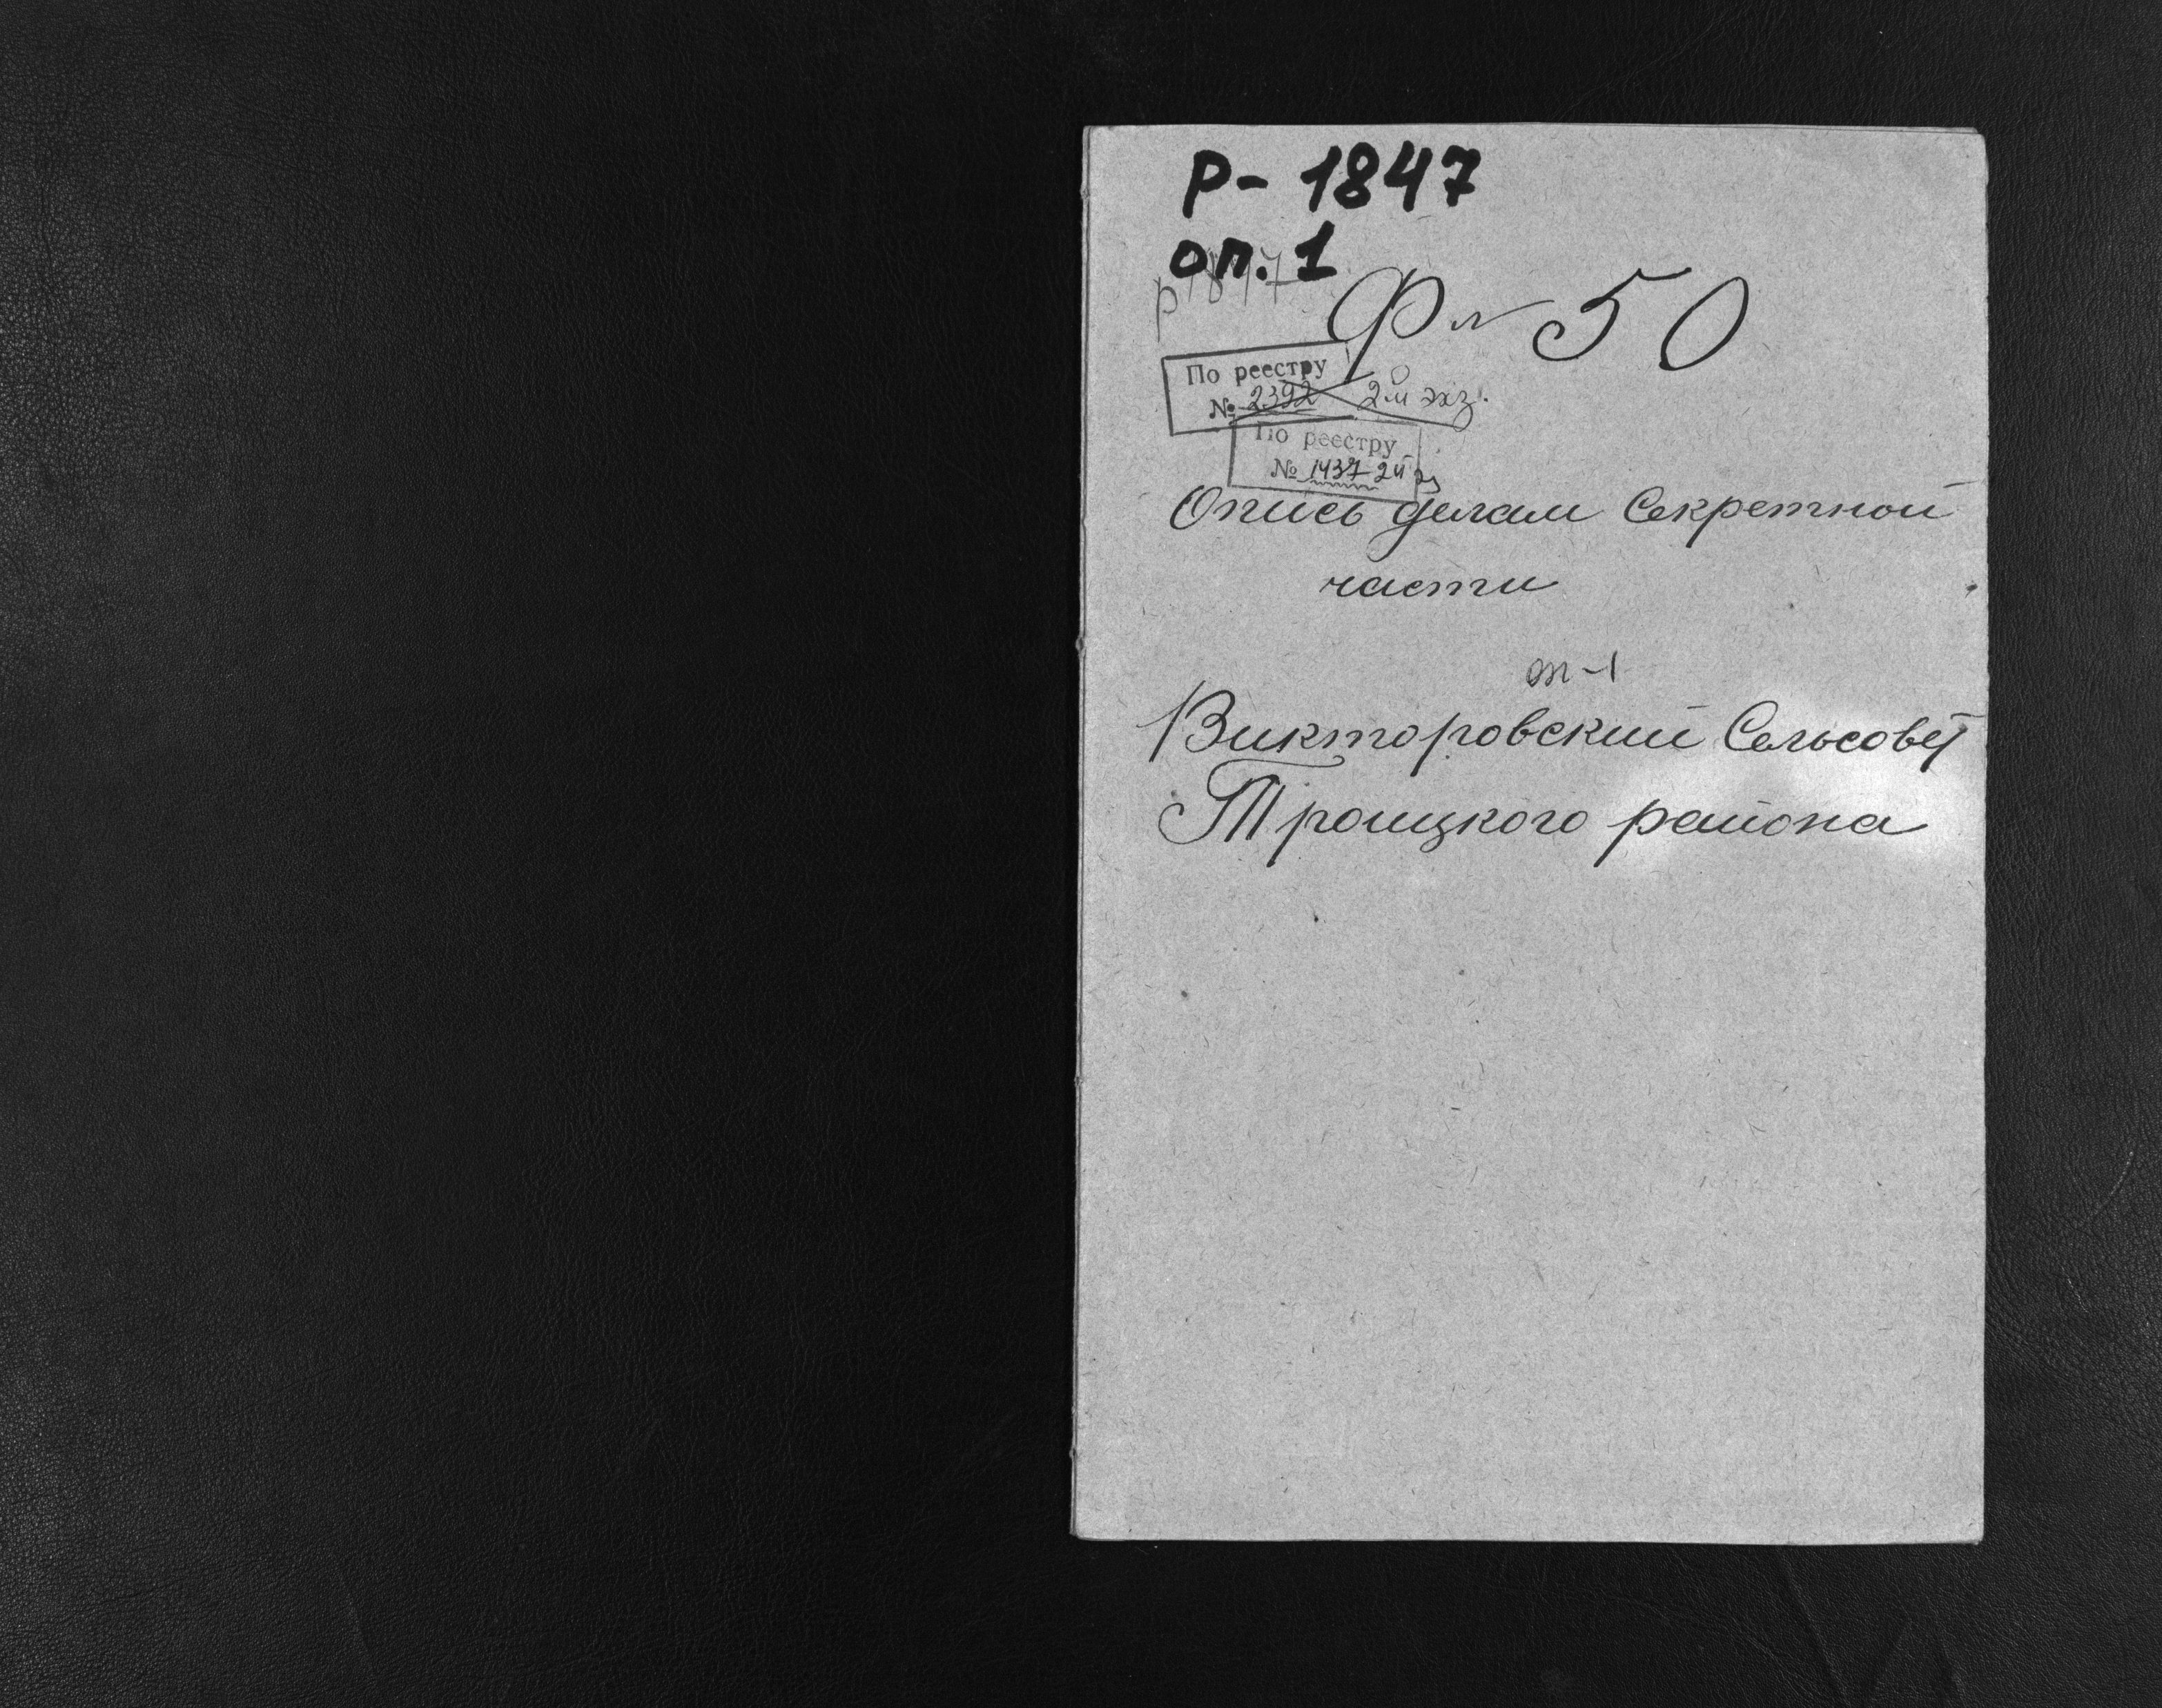 Р- 1847
оп. 1
Р 1847
Ф № 50
По реестру
№ 2392 2й экз.
По реестру
№ 1437 2й э
Опись делам Секретной
части
оп-1
Викторовский Сельсовет
Троицкого района